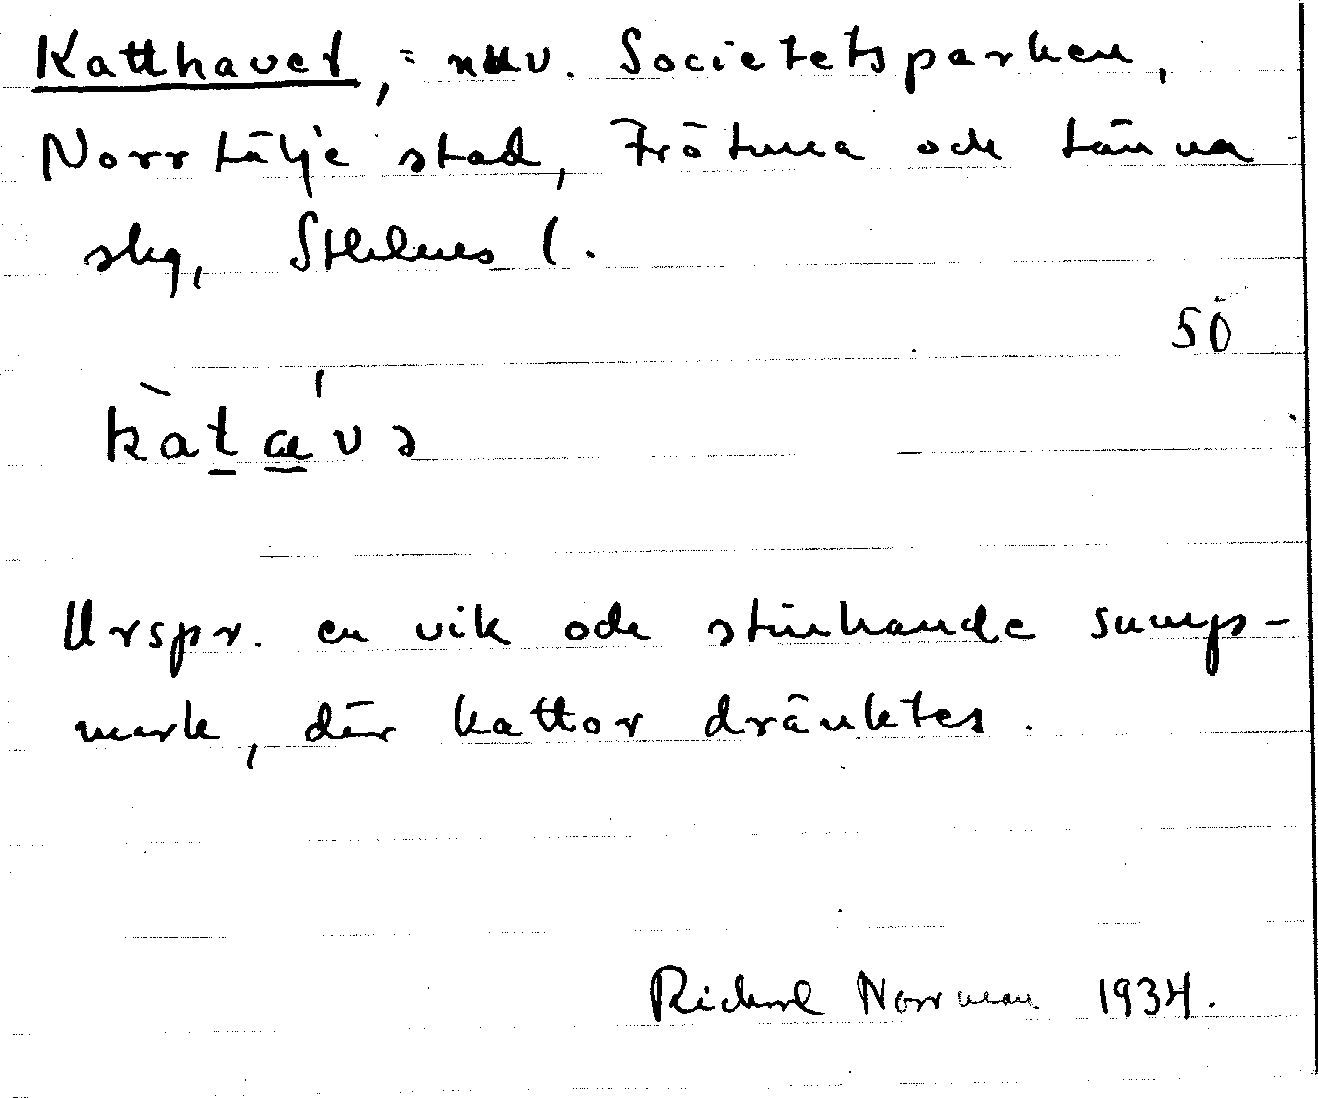 Katthavet, = nuv. Societetsparken,
Norrtälje stad, Frötuna och Länna
skg, Sthlms l.
50
kàtæ´və
Urspr. en vik och stinkande sump-
mark, där kattor dränktes.
Richard Norrman 1934.